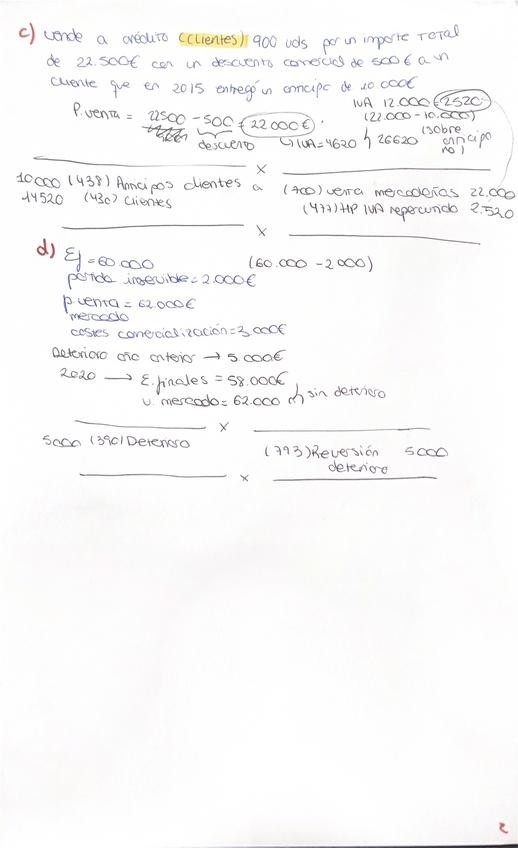 c) Vende a crédito (clientes) 900 uds por un importe TOTAL
de 22.500€ con un descuento comercial de 500€ a un
cliente que en 2015 entregó un anticipo de 10.000€
P.venta = 22500 - 500 = 22000€
descuento
↳ IVA = 4620 } 26620
IVA 12.000 = 2520
(22.000 - 10.000)
(sobre
anticipo
no)
x
10000 (438) Anticipos clientes a (700) venta mercaderías 22.000
14520 (430) Clientes (477) HP IVA repercutido 2.520
x
d) Ej = 60.000 (60.000 - 2000)
partida inservible = 2.000€
p.venta = 62.000€
mercado
costes comercialización = 3.000€
Deterioro año anterior → 5.000€
2020 → E. finales = 58.000€
v. mercado = 62.000 } sin deterioro
x
5000 (390) Deterioro (793) Reversión 5000
deterioro
x
2